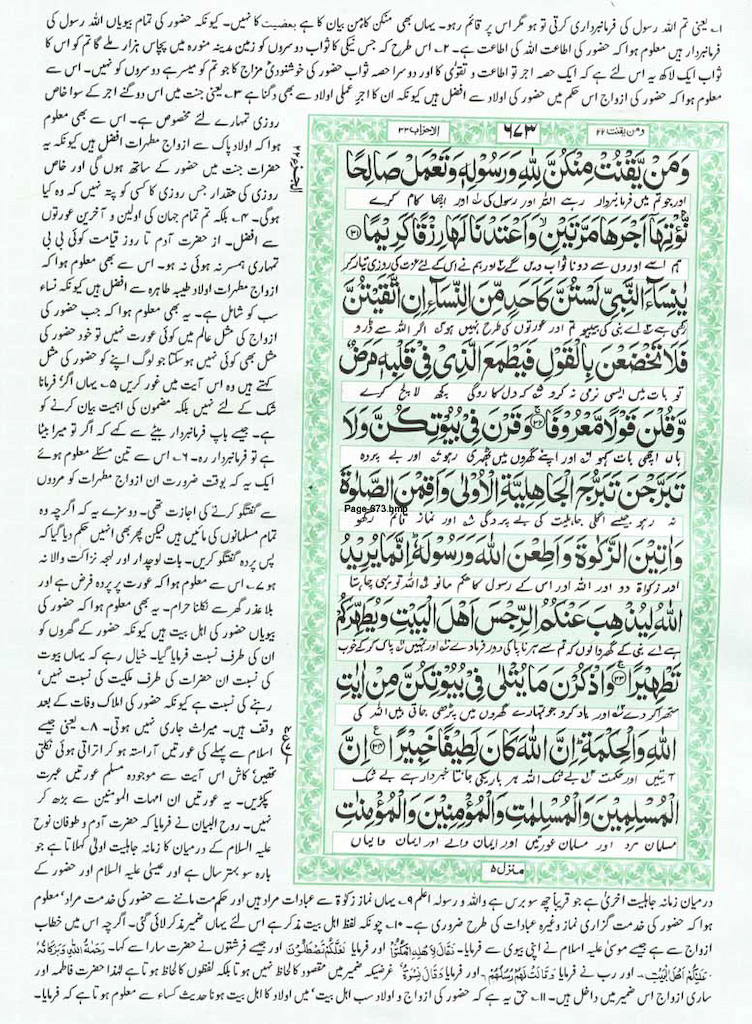 ۱۔ یعنی تم اللہ رسول کی فرمانبرداری کرتی تو ہو مگر اس پر قائم رہو۔ یہاں بھی منکن کا من بیان کا ہے بعضیت کا نہیں۔ کیونکہ حضور کی تمام بیویاں اللہ رسول کی
فرمانبردار ہیں معلوم ہوا کہ حضور کی اطاعت اللہ کی اطاعت ہے۔ ۲۔ اس طرح کہ جس نیکی کا ثواب دوسروں کو زمین مدینہ منورہ میں پچاس ہزار ملے گا تم کو اس کا
ثواب ایک لاکھ یہ اس لئے ہے کہ ایک حصہ اجر تو اطاعت و تقویٰ کا اور دوسرا حصہ ثواب حضور کی خوشنودیٔ مزاج کا جو تم کو میسر ہے دوسروں کو نہیں۔ اس سے
معلوم ہوا کہ حضور کی ازواج اس حکم میں حضور کی اولاد سے افضل ہیں کیونکہ ان کا اجر عملی اولاد سے بھی دگنا ہے ۳۔ یعنی جنت میں اس دو گنے اجر کے سوا خاص
روزی تمہارے لئے مخصوص ہے۔ اس سے بھی معلوم
ہوا کہ اولاد پاک سے ازواج مطہرات افضل ہیں کیونکہ یہ
حضرات جنت میں حضور کے ساتھ ہوں گی اور خاص
روزی کی مقدار جس روزی کا کسی کو پتہ نہیں کہ وہ کیا
ہوگی۔ ۴۔ بلکہ تم تمام جہان کی اولین و آخرین عورتوں
سے افضل۔ از حضرت آدم تا روز قیامت کوئی بی بی
تمہاری ہمسر نہ ہوئی نہ ہو۔ اس سے بھی معلوم ہوا کہ
ازواج مطہرات اولاد طیبہ طاہرہ سے افضل ہیں کیونکہ نساء
سب کو شامل ہے۔ یہ بھی معلوم ہوا کہ جب حضور کی
ازواج کی مثل عالم میں کوئی عورت نہیں تو خود حضور کی
مثل بھی کوئی نہیں ہوسکتا جو لوگ اپنے کو حضور کی مثل
کہتے ہیں وہ اس آیت میں غور کریں ۵۔ یہاں اگر فرمانا
شک کے لئے نہیں بلکہ مضمون کی اہمیت بیان کرنے کو
ہے۔ جیسے باپ فرمانبردار بیٹے سے کہے کہ اگر تو میرا بیٹا
ہے تو فرمانبردار رہ۔ ۶۔ اس سے تین مسئلے معلوم ہوئے
ایک یہ کہ بوقت ضرورت ان ازواج مطہرات کو مردوں
سے گفتگو کرنے کی اجازت تھی۔ دوسرے یہ کہ اگرچہ وہ
تمام مسلمانوں کی مائیں ہیں لیکن پھر بھی انہیں حکم دیا گیا کہ
پس پردہ گفتگو کریں۔ بات لوچدار اور لہجہ نزاکت والا نہ
ہو ۷۔ اس سے معلوم ہوا کہ عورت پر پردہ فرض ہے اور
بلا عذر گھر سے نکلنا حرام۔ یہ بھی معلوم ہوا کہ حضور کی
بیویاں حضور کی اہل بیت ہیں کیونکہ حضور کے گھروں کو
ان کی طرف نسبت فرمایا گیا۔ خیال رہے کہ یہاں بیوت
کی نسبت ان حضرات کی طرف ملکیت کی نسبت نہیں‘
رہنے کی نسبت ہے کیونکہ حضور کی املاک وفات کے بعد
وقف ہیں۔ میراث جاری نہیں ہوتی۔ ۸۔ یعنی جیسے
اسلام سے پہلے کی عورتیں آراستہ ہو کر اتراتی ہوئی نکلتی
تھیں کاش اس آیت سے موجودہ مسلم عورتیں عبرت
پکڑیں۔ یہ عورتیں ان امہات المومنین سے بڑھ کر
نہیں۔ روح البیان نے فرمایا کہ حضرت آدم و طوفان نوح
علیہ السلام کے درمیان کا زمانہ جاہلیت اولیٰ کہلاتا ہے جو
بارہ سو بہتر سال ہے اور عیسیٰ علیہ السلام اور حضور کے
ومن یقنت ۲۲
۶۷۳
الاحزاب ۳۳
وَمَنْ يَّقْنُتْ مِنْكُنَّ لِلّٰهِ وَرَسُوْلِهٖ وَتَعْمَلْ صَالِحًا
اور جو تم میں فرمانبردار رہے اللہ اور رسول کی اور اچھا کام کرے
نُّؤْتِهَآ اَجْرَهَا مَرَّتَيْنِ وَاَعْتَدْنَا لَهَا رِزْقًا كَرِيْمًا ﴿۳۱﴾
ہم اسے اوروں سے دونا ثواب دیں گے اور ہم نے اس کے لئے عزت کی روزی تیار کر
يٰنِسَآءَ النَّبِيِّ لَسْتُنَّ كَاَحَدٍ مِّنَ النِّسَآءِ اِنِ اتَّقَيْتُنَّ
رکھی ہے اے نبی کی بیبیو تم اور عورتوں کی طرح نہیں ہو اگر اللہ سے ڈرو
فَلَا تَخْضَعْنَ بِالْقَوْلِ فَيَطْمَعَ الَّذِيْ فِيْ قَلْبِهٖ مَرَضٌ
تو بات میں ایسی نرمی نہ کرو کہ دل کا روگی کچھ لالچ کرے
وَّقُلْنَ قَوْلًا مَّعْرُوْفًا ﴿۳۲﴾ وَقَرْنَ فِيْ بُيُوْتِكُنَّ وَلَا
ہاں اچھی بات کہو اور اپنے گھروں میں ٹھہری رہو اور بے پردہ
تَبَرَّجْنَ تَبَرُّجَ الْجَاهِلِيَّةِ الْاُوْلٰى وَاَقِمْنَ الصَّلٰوةَ
Page-673.bmp
نہ رہو جیسے اگلی جاہلیت کی بے پردگی اور نماز قائم رکھو
وَاٰتِيْنَ الزَّكٰوةَ وَاَطِعْنَ اللّٰهَ وَرَسُوْلَهٗ اِنَّمَا يُرِيْدُ
اور زکوٰۃ دو اور اللہ اور اس کے رسول کا حکم مانو اللہ تو یہی چاہتا
اللّٰهُ لِيُذْهِبَ عَنْكُمُ الرِّجْسَ اَهْلَ الْبَيْتِ وَيُطَهِّرَكُمْ
ہے اے نبی کے گھر والو کہ تم سے ہر ناپاکی دور فرما دے اور تمہیں پاک کر کے خوب
تَطْهِيْرًا ﴿۳۳﴾ وَاذْكُرْنَ مَا يُتْلٰى فِيْ بُيُوْتِكُنَّ مِنْ اٰيٰتِ
ستھرا کر دے اور یاد کرو جو تمہارے گھروں میں پڑھی جاتی ہیں اللہ کی
اللّٰهِ وَالْحِكْمَةِ اِنَّ اللّٰهَ كَانَ لَطِيْفًا خَبِيْرًا ﴿۳۴﴾ اِنَّ
آیتیں اور حکمت بے شک اللہ ہر باریکی جانتا خبردار ہے بے شک
الْمُسْلِمِيْنَ وَالْمُسْلِمٰتِ وَالْمُؤْمِنِيْنَ وَالْمُؤْمِنٰتِ
مسلمان مرد اور مسلمان عورتیں اور ایمان والے اور ایمان والیاں
منزل ۵
درمیان زمانہ جاہلیت اخریٰ ہے جو قریباً چھ سو برس ہے واللہ و رسولہ اعلم ۹۔ یہاں نماز زکوٰۃ سے عبادات مراد ہیں اور حکومت ماننے سے حضور کی خدمت مراد‘ معلوم
ہوا کہ حضور کی خدمت گزاری نماز وغیرہ عبادات کی طرح ضروری ہے۔ ۱۰۔ چونکہ لفظ اہل بیت مذکر ہے اس لئے یہاں ضمیر مذکر لائی گئی۔ اگرچہ اس میں خطاب
ازواج سے ہے جیسے موسیٰ علیہ السلام نے اپنی بیوی سے فرمایا۔ فَقَالَ لِاَهْلِهِ امْكُثُوْٓا اور فرمایا لَعَلَّكُمْ تَصْطَلُوْنَ اور جیسے فرشتوں نے حضرت سارا سے کہا۔ رَحْمَةُ اللّٰهِ وَبَرَكَاتُهٗ
عَلَيْكُمْ اَهْلَ الْبَيْتِ اور رب نے فرمایا قَالَتْ لَهُمْ رُسُلُهُمْ اور فرمایا وَقَالَ نِسْوَةٌ غرضیکہ ضمیر میں مقصود کا لحاظ نہیں ہوتا بلکہ لفظوں کا لحاظ ہوتا ہے لہٰذا حضرت فاطمہ اور
ساری ازواج اس ضمیر میں داخل ہیں۔ ۱۱۔ حق یہ ہے کہ حضور کی ازواج و اولاد سب اہل بیت‘ میں اولاد کا اہل بیت ہونا حدیث کساء سے معلوم ہوتا ہے کہ فرمایا۔